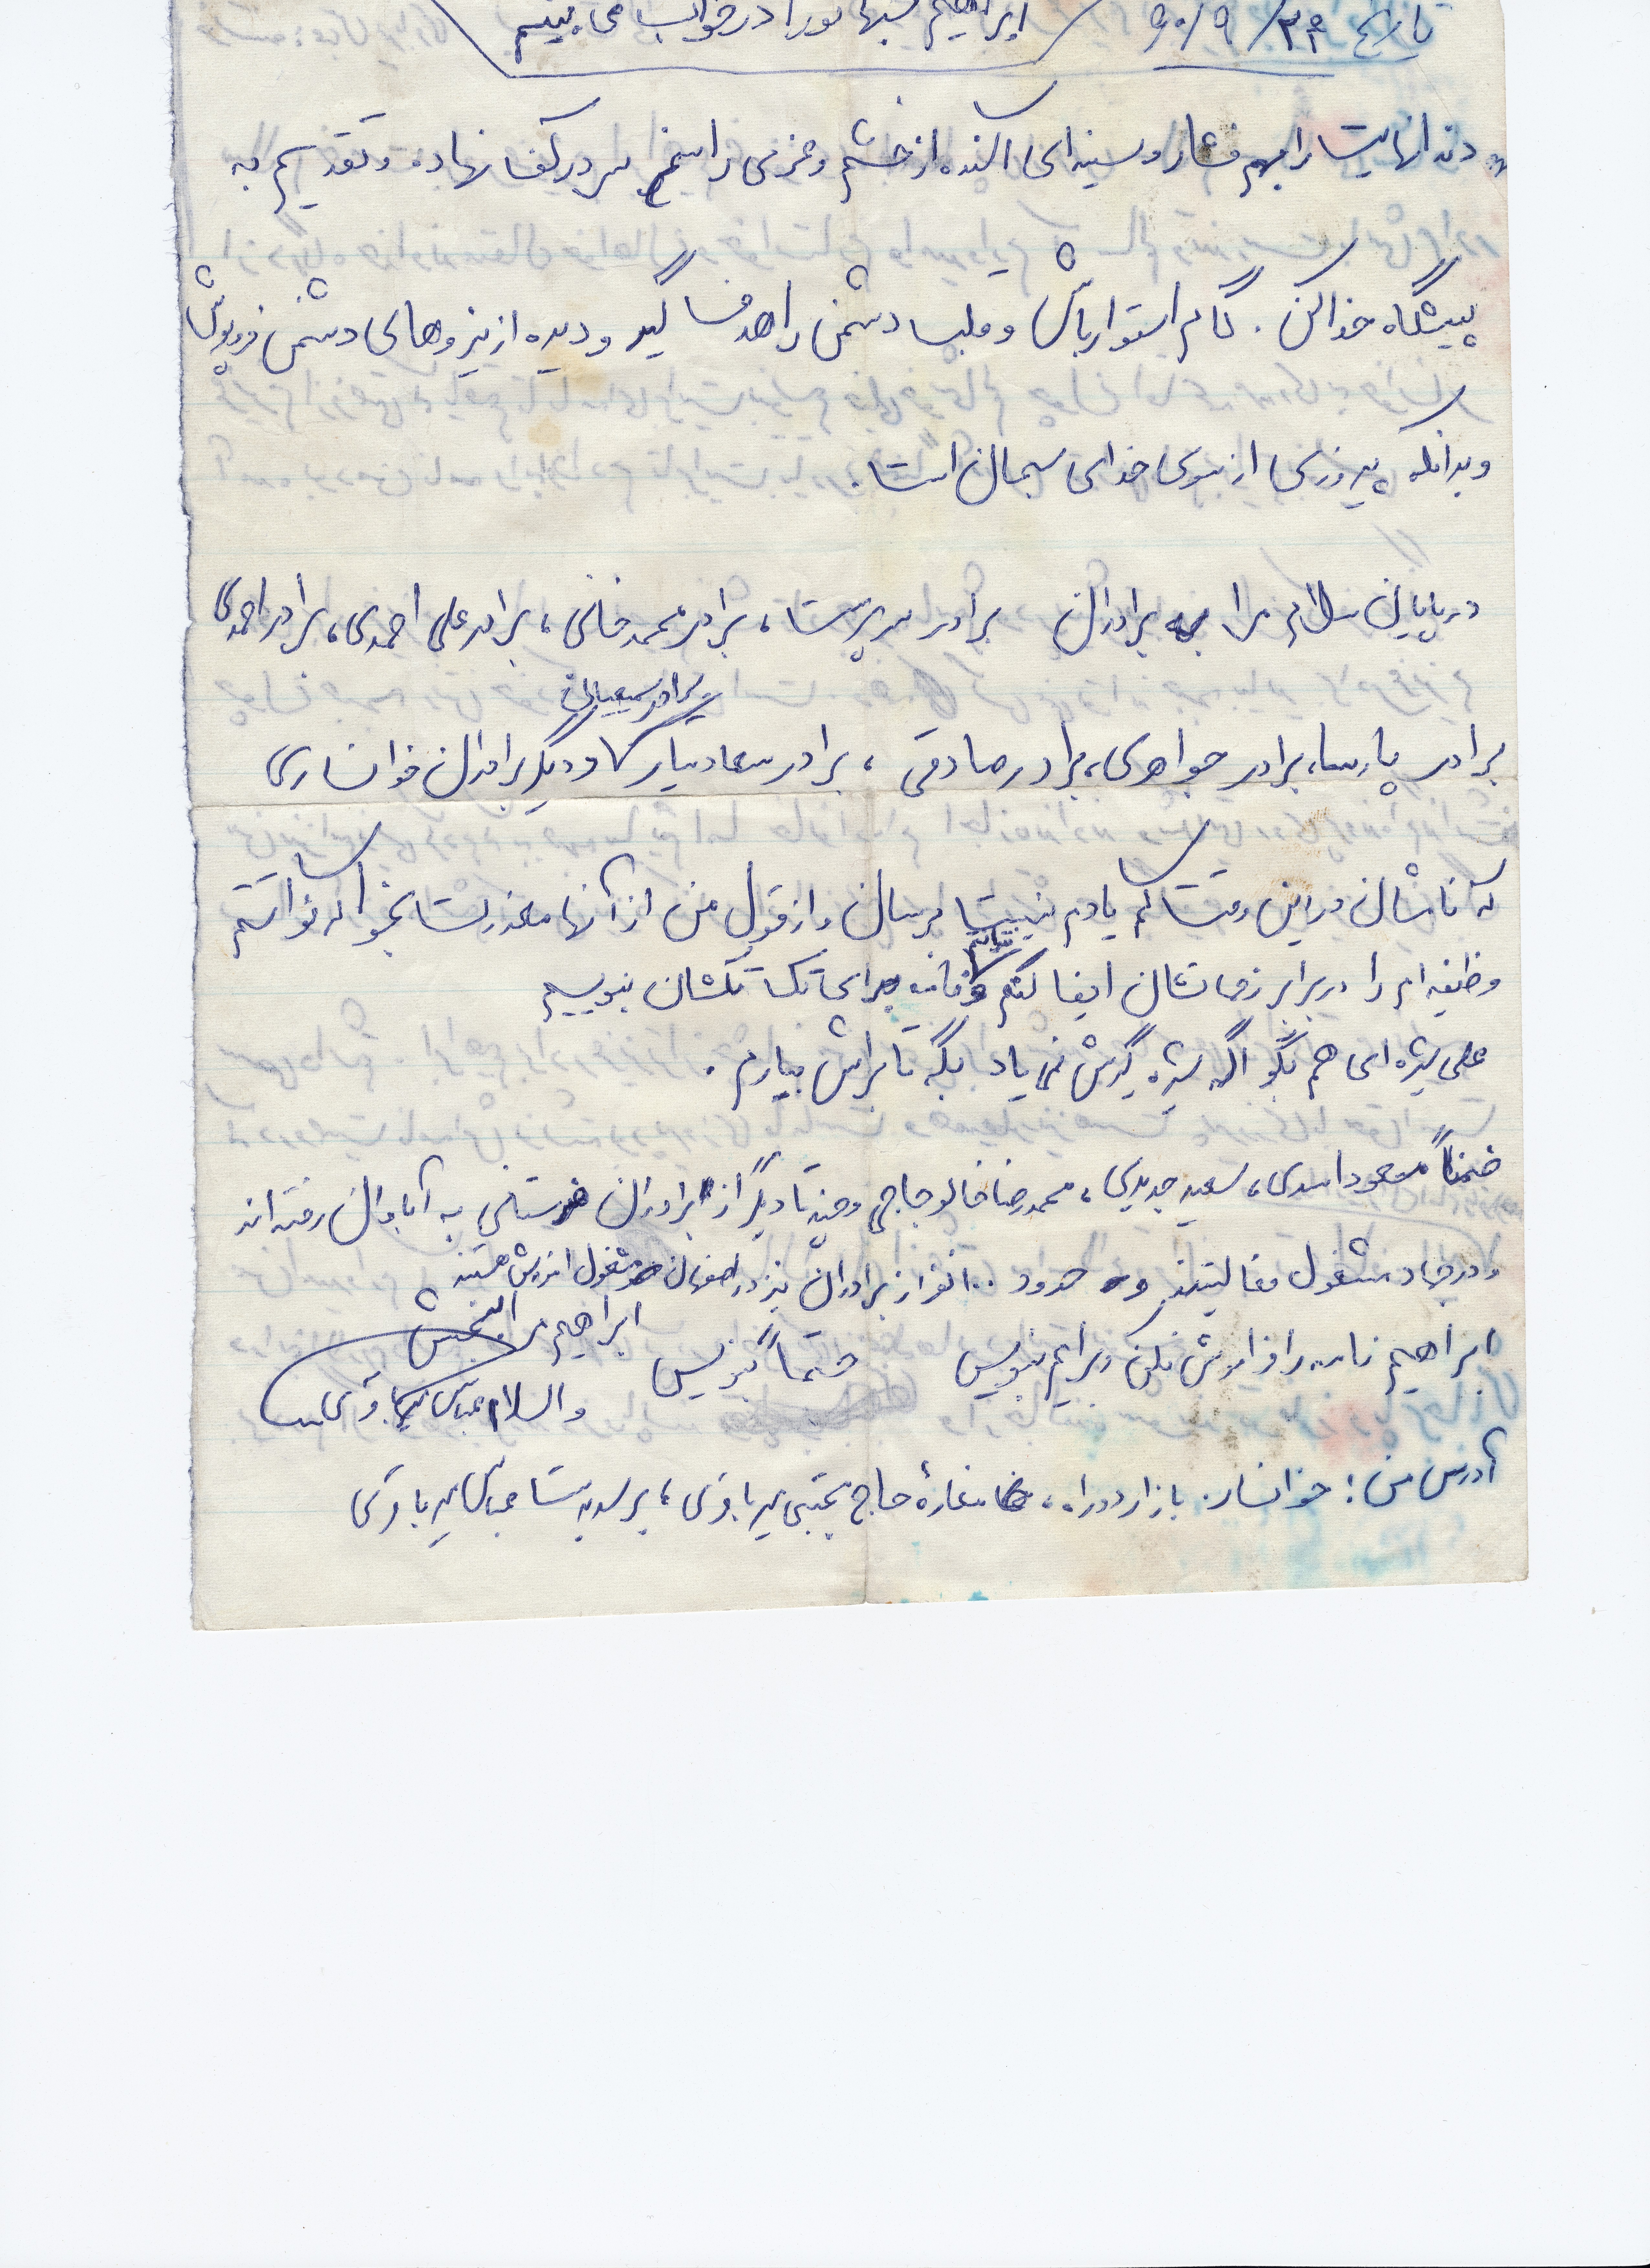 تاریخ ۶۰/۹/۲۳ ابراهیم شبها تو را در خواب می بینم
« دندانهایت را بهم فشار و سینه ای آکنده از خشم و عزمی راسخ سر در کف نهاده و تقدیم به
پیشگاه خدا کن . گام استوار باش و قلب دشمن را هدف گیر و دیده از نیروهای دشمن فروپوش
و بدانکه پیروزی از سوی خدای سبحان است .
در پایان سلام مرا به برادران برادر سرپرست ، برادر محمدخانی ، برادر علی احمدی ، برادر احمدی
برادر سمیعیان
برادر پارسا ، برادر جواهری ، برادر صادقی ، برادر سعادتیار و دیگر برادران خوانساری
که نامشان در این وقت کم یادم نیست برسان و از قول من از آنها معذرت بخواه که نتوانستم
وظیفه ام را در برابر زحماتشان ایفا کنم نتوانم نامه برای تک تکشان بنویسم
علی بیژه ای هم بگو اگه بیژه گیرش نمی یاد بگه تا براش بیارم .
ضمناً مسعود اسدی ، سعید جدیدی ، محمدرضا خالوحاجی و چند تا دیگر از برادران به آبادان رفته اند
و در جهاد مشغول فعالیتند و حدود ۱۰۰ نفر از برادران نیز در اصفهان مشغول آموزش هستند
ابراهیم نامه را فراموش نکن و برایم بنویس حتماً بنویس ابراهیم مرا ببخش
والسلام عباس میرباقری
آدرس من : خوانسار . بازار دوراه ، مغازهٔ حاج مجتبی میرباقری ، برسد بدست عباس میرباقری